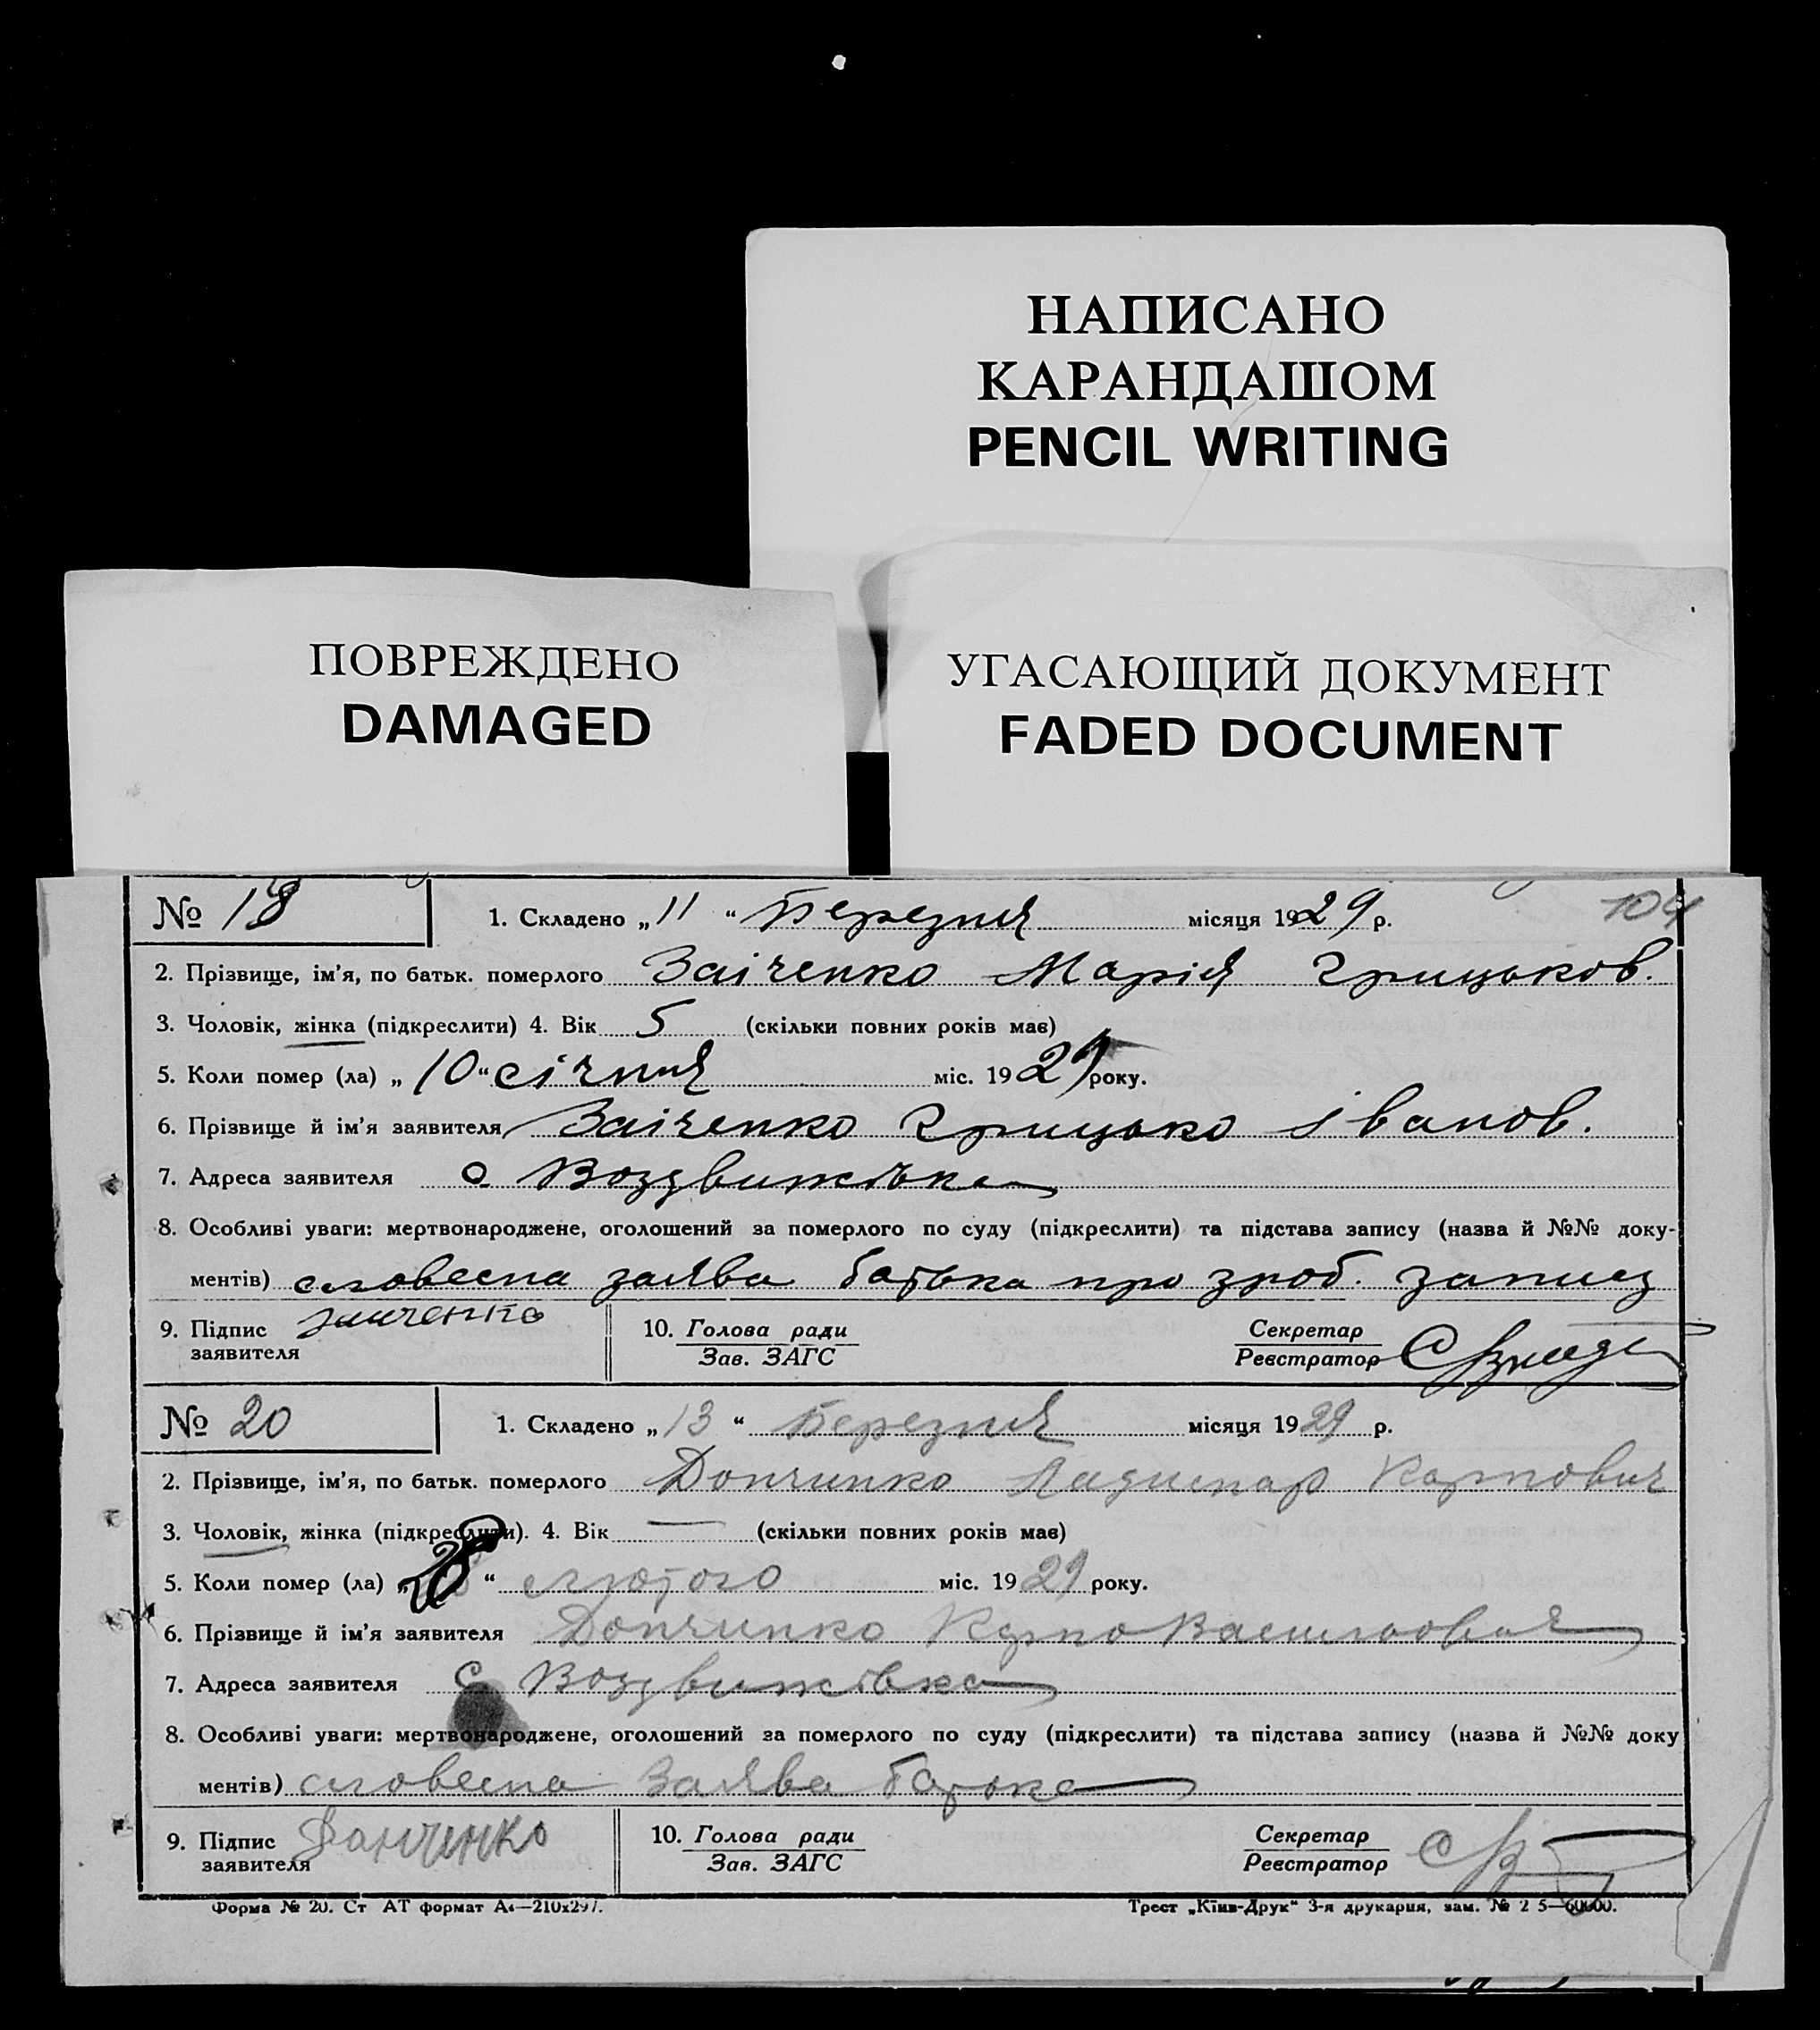 НАПИСАНО
КАРАНДАШОМ
PENCIL WRITING
ПОВРЕЖДЕНО
DAMAGED
УГАСАЮЩИЙ ДОКУМЕНТ
FADED DOCUMENT
104
№ 18 1. Складено „11“ Березня місяця 1929 р.
2. Прізвище, ім'я, по батьк. померлого Заіченко Марія Грицьков.
3. Чоловік, жінка (підкреслити) 4. Вік 5 (скільки повних років має)
5. Коли помер (ла) „10“ січня міс. 1929 року.
6. Прізвище й ім'я заявителя Заіченко Грицько Іванов.
7. Адреса заявителя с Воздвижівка
8. Особливі уваги: мертвонароджене, оголошений за померлого по суду (підкреслити) та підстава запису (назва й №№ доку-
ментів) словесна заява батька про зроб. запису
9. Підпис заявителя 10. Голова ради Зав. ЗАГС Секретар Реєстратор
№ 20 1. Складено „13“ Березня місяця 1929 р.
2. Прізвище, ім'я, по батьк. померлого Дончинко Карпович
3. Чоловік, жінка (підкреслити). 4. Вік — (скільки повних років має)
5. Коли помер (ла) „28“ лютого міс. 1929 року.
6. Прізвище й ім'я заявителя Дончинко Карпо Васильович
7. Адреса заявителя с Воздвижівка
8. Особливі уваги: мертвонароджене, оголошений за померлого по суду (підкреслити) та підстава запису (назва й №№ доку
ментів) словесна Заява батька
9. Підпис заявителя Данченко 10. Голова ради Зав. ЗАГС Секретар Реєстратор
Форма № 20. Ст АТ формат А4—210х297. Трест „Київ-Друк“ 3-я друкарня, зам. №